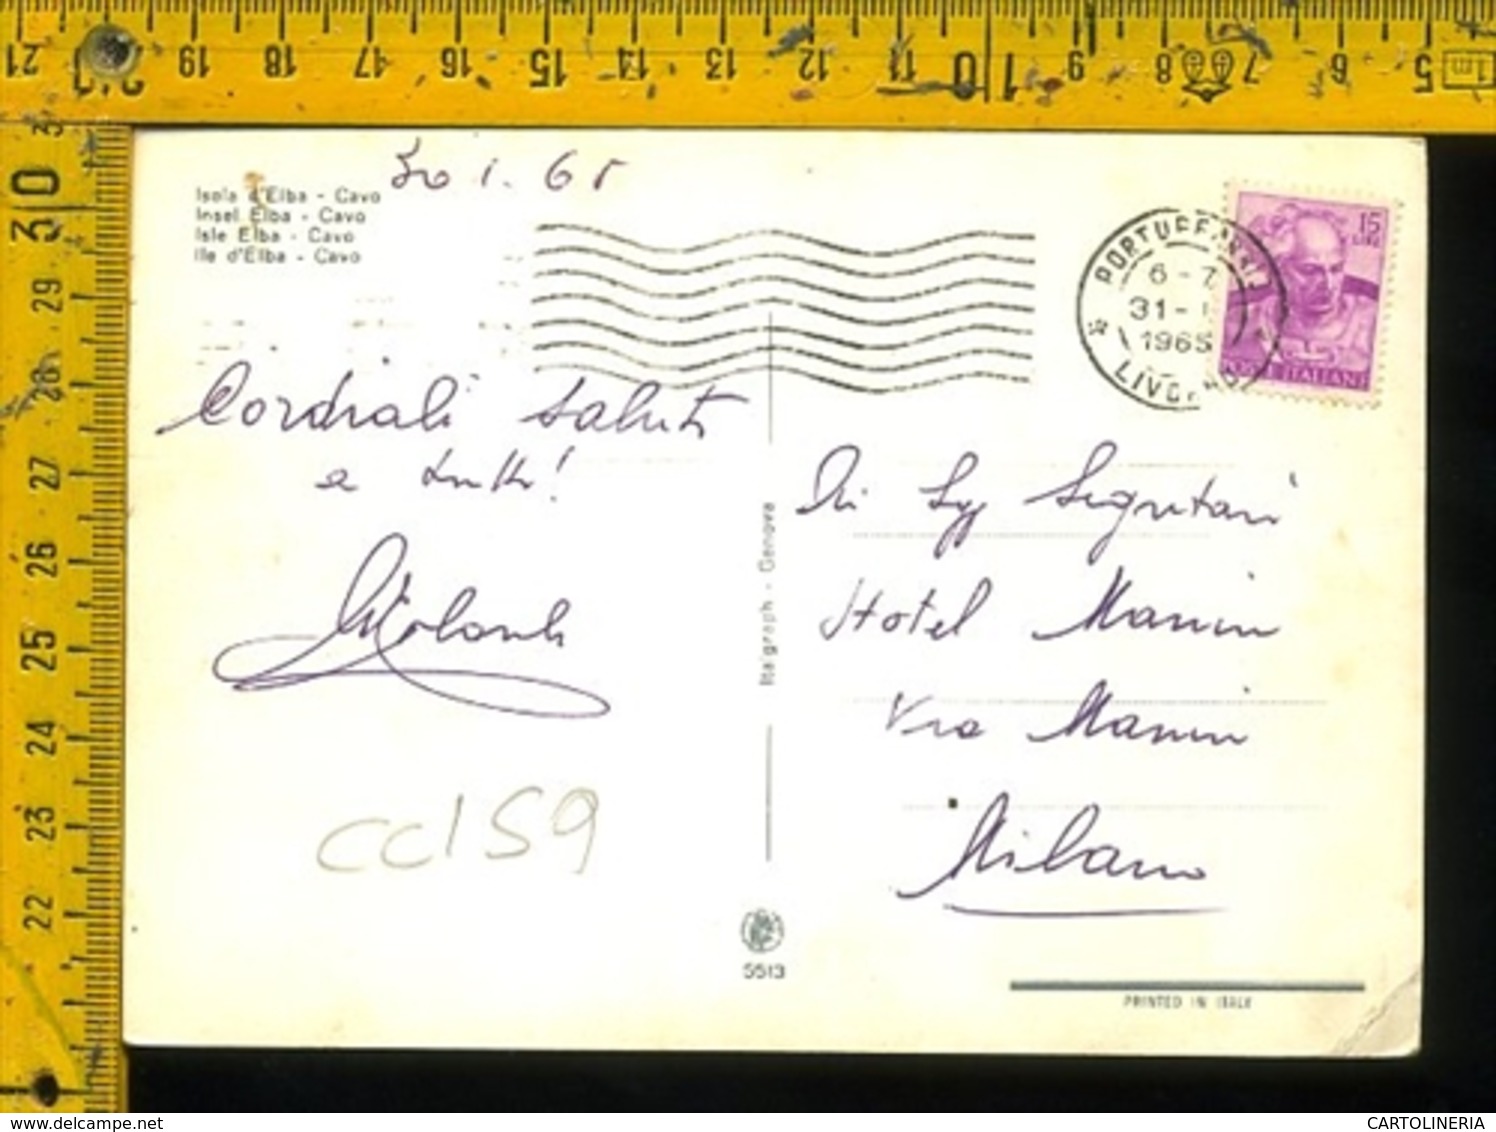 21 20 19 18 17 16 15 14 13 12 11 10 9 8 7 6 5
1m
30 29 28 27 26 25 24 23 22
30 1. 65
Isola d'Elba - Cavo
Insel Elba - Cavo
Isle Elba - Cavo
Ile d'Elba - Cavo
15
LIRE
6-7
31-1
1965
Cordiali saluti
a tutti!
Hotel Manin
Via Manin
Milano
Italgraph - Genova
CC159
5513
PRINTED IN ITALY
CARTOLINERIA